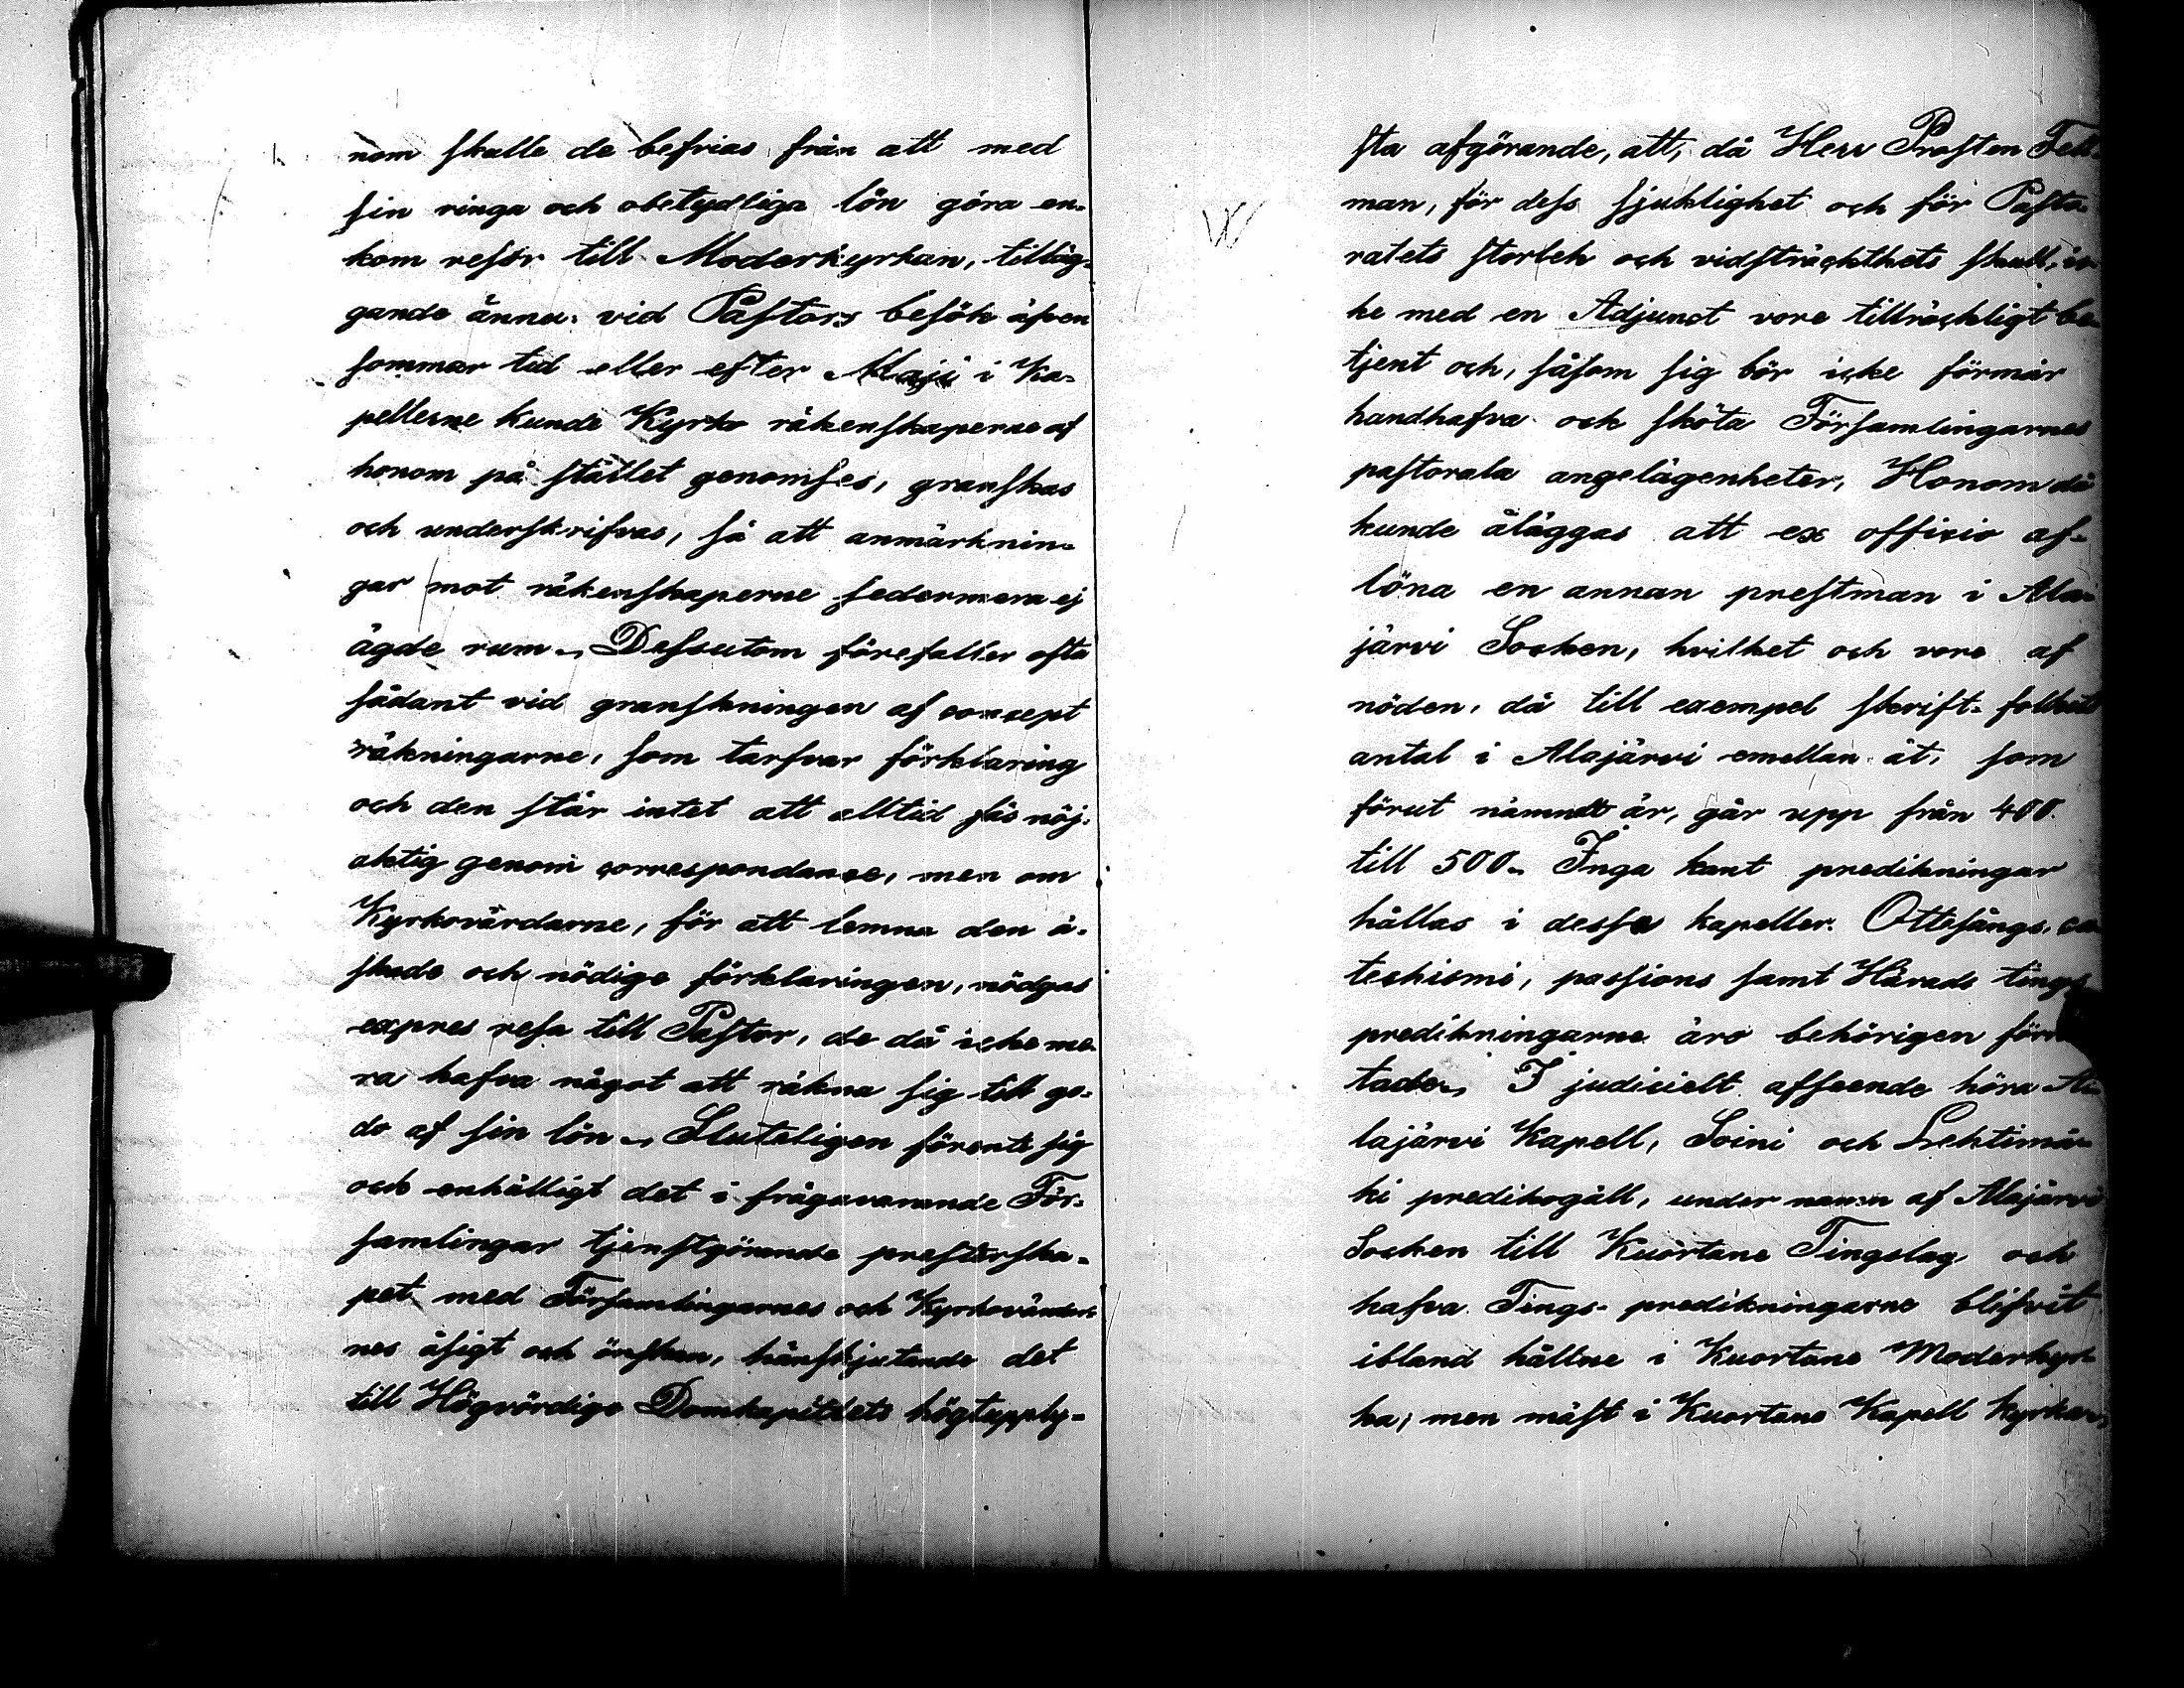 nom skulle de befrias från att med
sin ringa och obetydliga lön göra en-
kom resor till Moderkyrkan, tilläg-
gande ännu: vid Pastors besök äfven
sommar tid eller efter Maji i Ka-
pellerne kunde Kyrko räkenskaperne af
honom på stället genomses, granskas
och underskrifvas, så att anmärknin-
gar mot räkenskaperne sedermera ej
ägde rum. Dessutom förefaller ofta
sådant vid granskningen af concept
räkningarne, som tarfvar förklaring
och den står intet att alltid fås nöj-
aktig genom correspondance, men om
Kyrkovärdarne, för att lemna den ä-
skade och nödige förklaringen, nödgas
expres resa till Pastor, de då icke me-
ra hafva något att räkna sig till go-
do af sin lön. Sluteligen förente sig
och enhälligt det i frågavarande För-
samlingar tjenstgörande presterska-
pet med Församlingarnes och Kyrkovärdar-
nes åsigt och önskan, hänskjutande det
till Högvördige Domkapitlets högtupply-
sta afgörande, att, då Herr Prosten Fell-
man, för dess sjuklighet och för Pasto-
ratets storlek och vidsträckthets skull, ic-
ke med en Adjunct vore tillräckligt be-
tjent och, såsom sig bör icke förmår
handhafva och sköta Församlingarnes
pastorala angelägenheter, Honom då
kunde åläggas att ex officio af-
löna en annan prestman i Ala-
järvi Socken, hvilket och vore af
nöden, då till exempel skrift-folkets
antal i Alajärvi emellan åt, som
förut nämndt är, går upp från 400.
till 500. Inga kant predikningar
hållas i desse kapeller. Ottesångs, ca-
techismi, passions samt Härads tings
predikningarne äro behörigen förrät-
tade. I judicielt afseende höra A-
lajärvi Kapell, Soini och Lehtimä-
ki predikogäll, under namn af Alajärvi
Socken till Kuortane Tingslag och
hafva Tings-predikningarne blifvit
ibland hållne i Kuortane Moderkyr-
ka, men mäst i Kuortane Kapell Kyrkan,